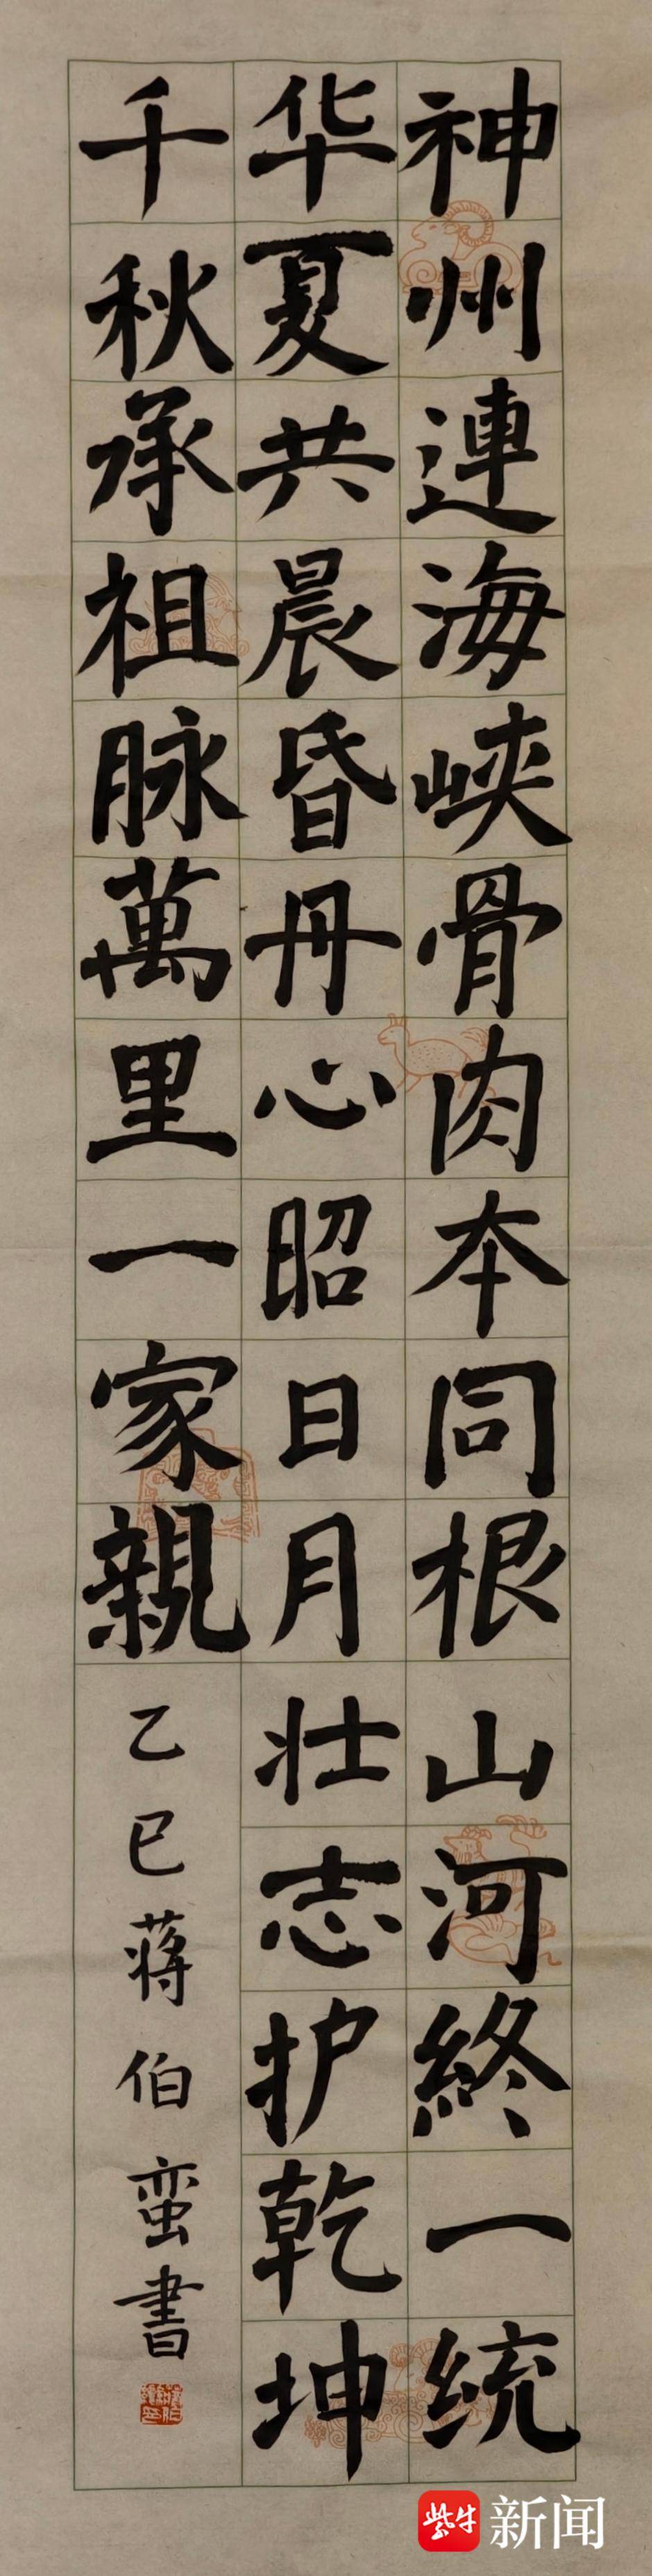 神州連海峡骨肉本同根山河終一统
华夏共晨昏丹心昭日月壮志护乾坤
千秋承祖脉萬里一家親
乙巳蒋伯蛮書
紫牛新闻